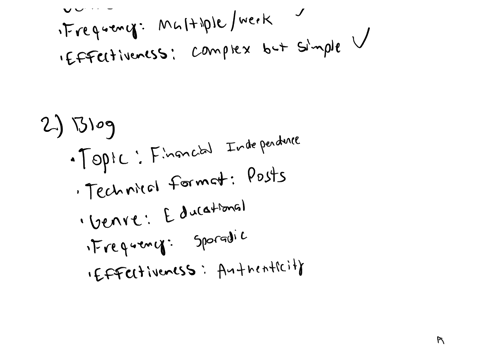 • Frequency: Multiple/week ✓
• Effectiveness: Complex but simple ✓
2) Blog
• Topic: Financial Independence
• Technical format: Posts
• Genre: Educational
• Frequency: Sporadic
• Effectiveness: Authenticity